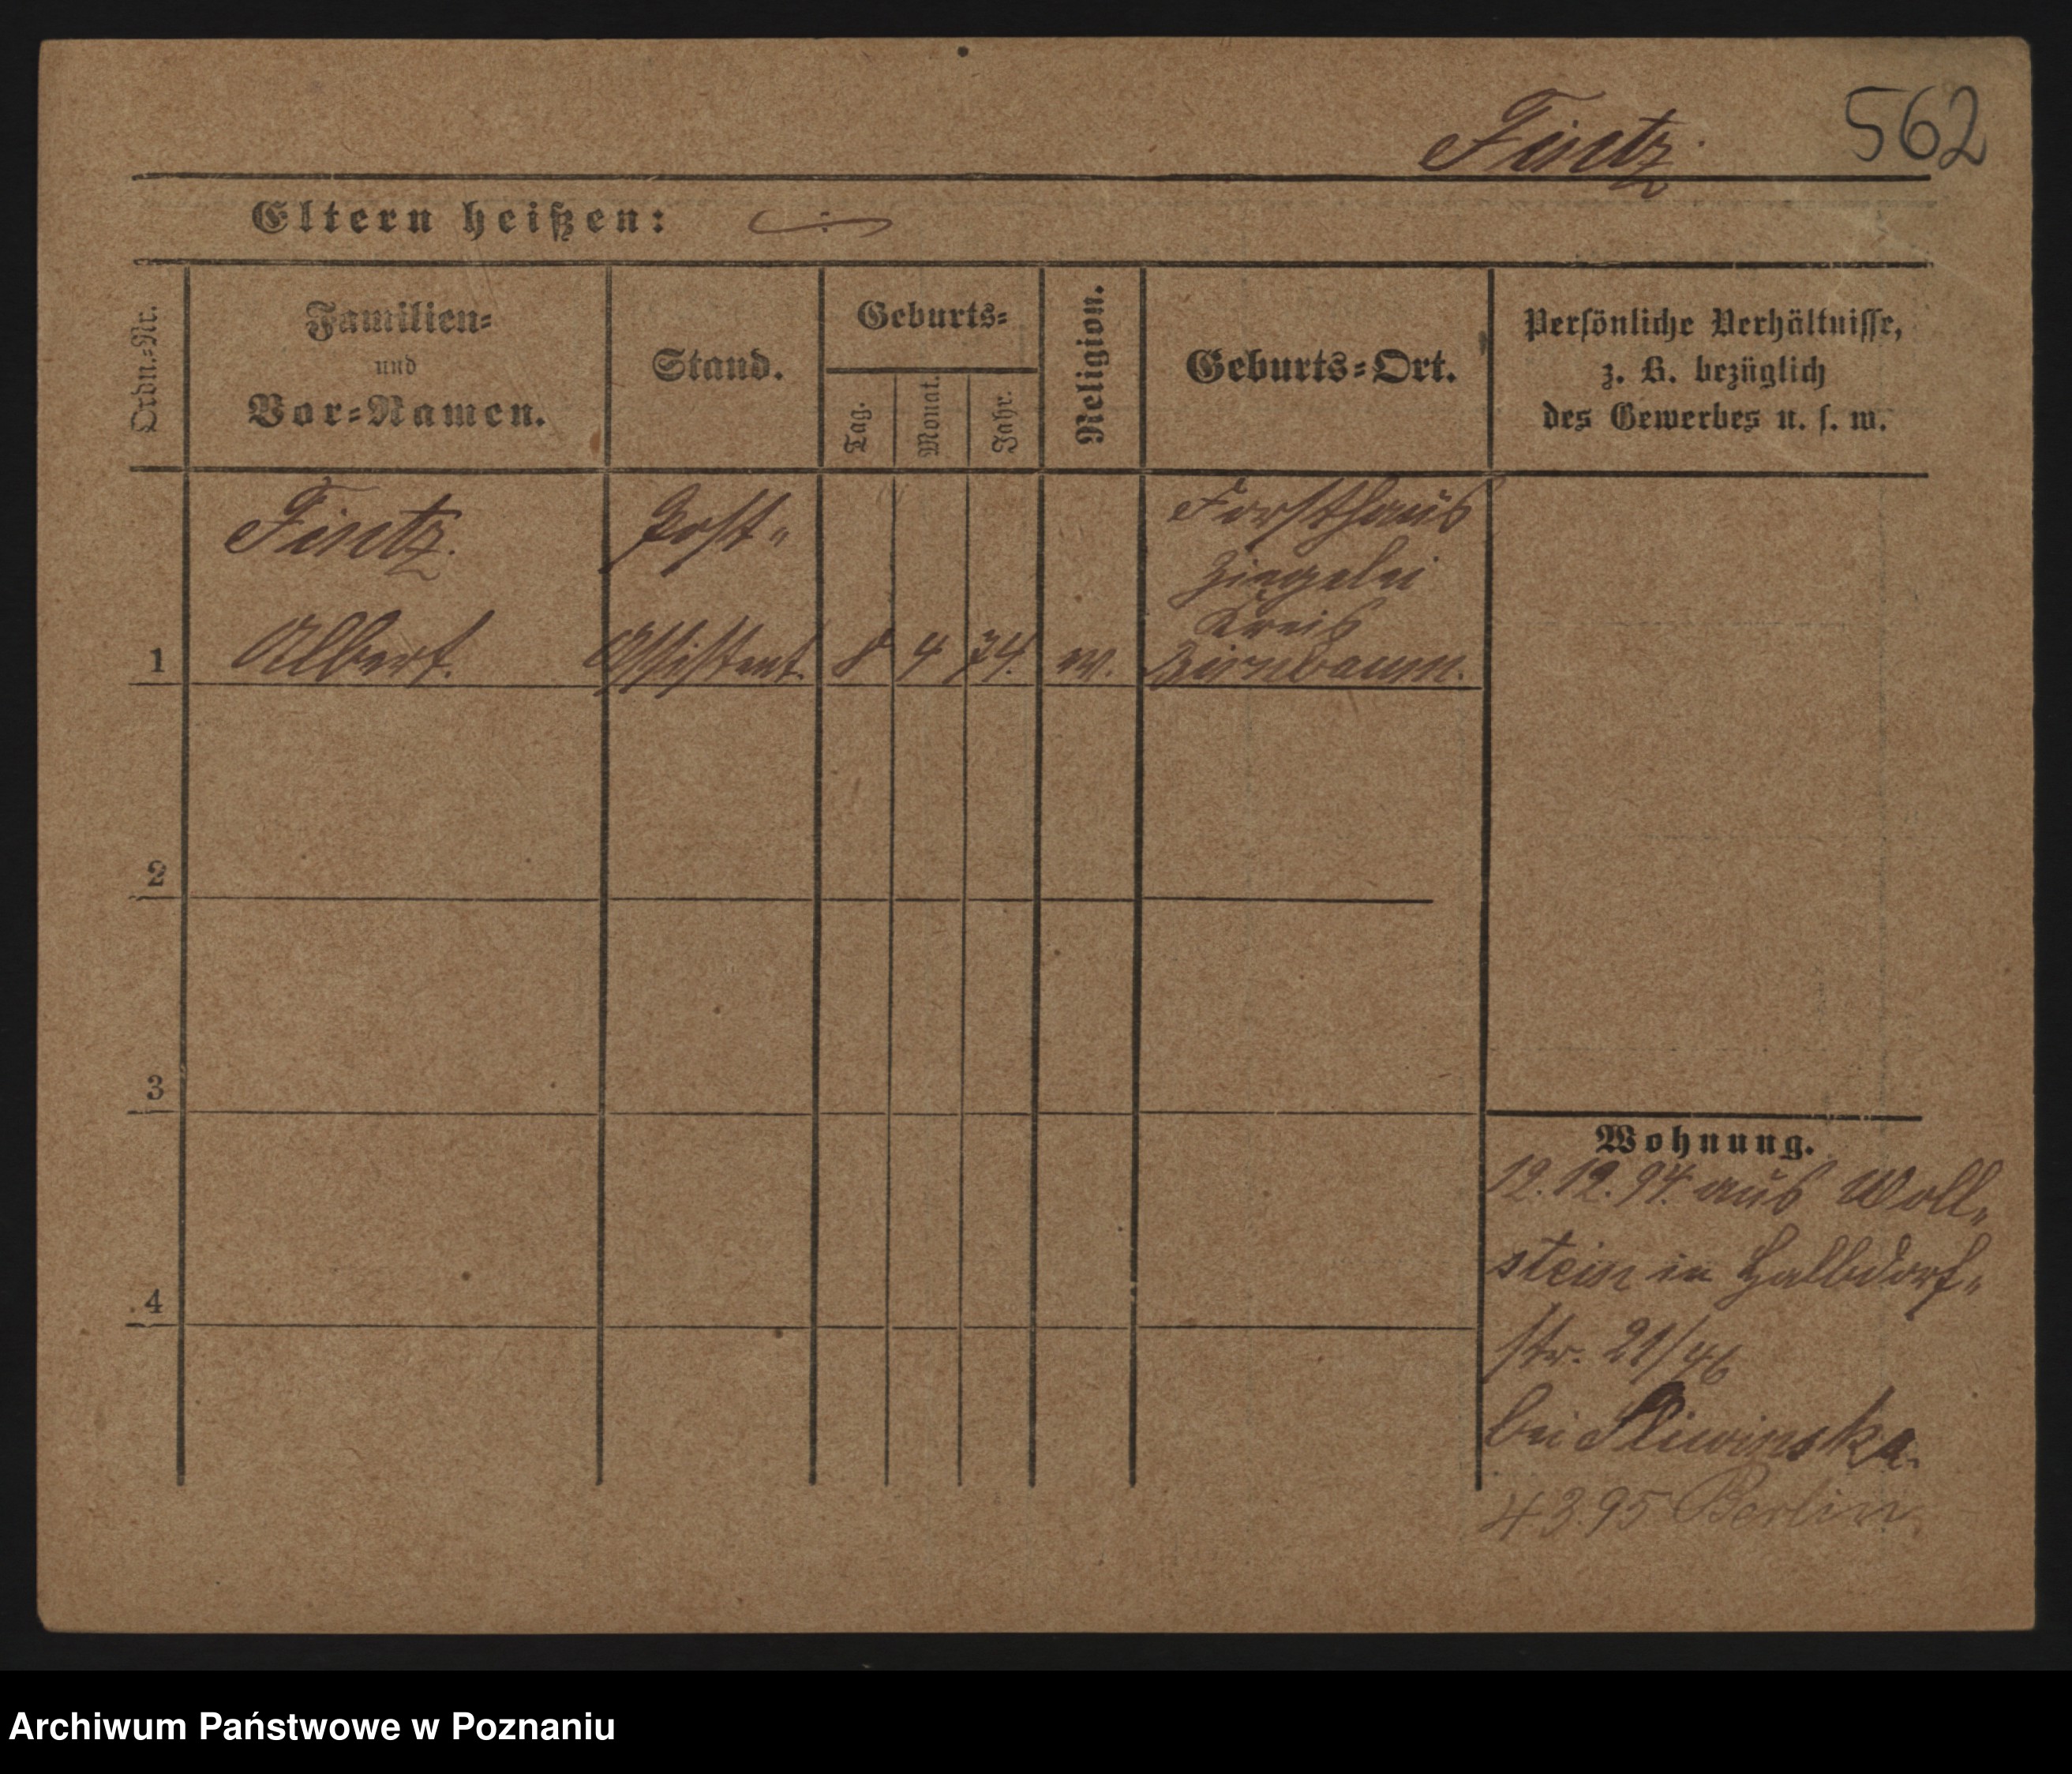 Fintz.
562
Eltern heißen:
Ordn.-Nr.
Familien-
und
Vor-Namen.
Stand.
Geburts-
Tag.
Monat.
Jahr.
Religion.
Geburts-Ort.
Persönliche Verhältnisse,
z. B. bezüglich
des Gewerbes u. s. w.
Fintz.
Post-
Forsthaus
Ziegelei
Kreis
1
Albert.
Assistent.
8
4
74.
Birnbaum.
2
3
4
Wohnung.
12.12.94. aus Woll-
stein in Halbdorf-
str. 21/46
bei Sliwinska.
4 3.95 Berlin
Archiwum Państwowe w Poznaniu